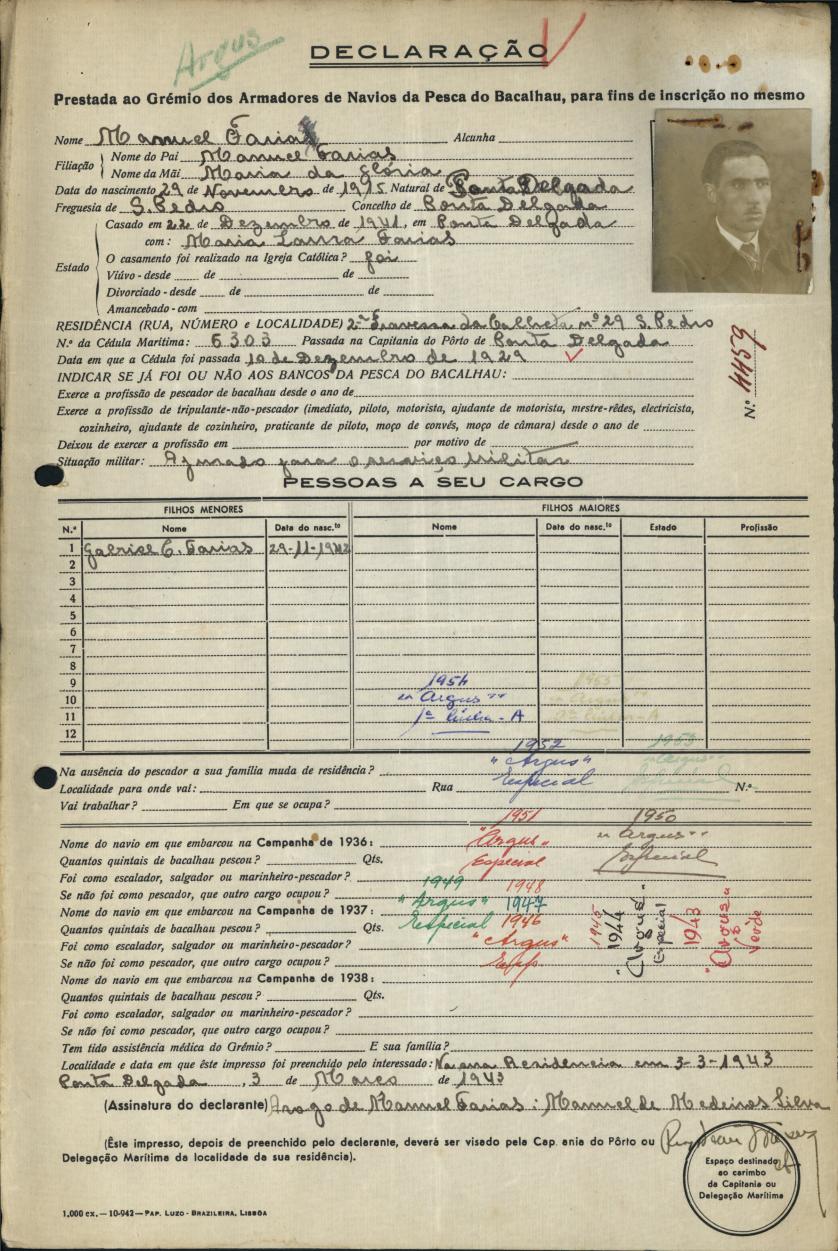 Argus
DECLARAÇÃO
Prestada ao Grémio dos Armadores de Navios da Pesca do Bacalhau, para fins de inscrição no mesmo
Nome Manuel Farias Alcunha
Filiação
Nome do Pai Manuel Farias
Nome da Mãi Maria da Glória
Data do nascimento 29 de Novembro de 1915 Natural de Ponta Delgada
Freguesia de S. Pedro Concelho de Ponta Delgada
Estado
Casado em 22 de Dezembro de 1941, em Ponta Delgada
com: Maria Laura Farias
O casamento foi realizado na Igreja Católica? foi
Viúvo - desde de de
Divorciado - desde de de
Amancebado - com
RESIDÊNCIA (RUA, NÚMERO e LOCALIDADE) 2ª Travessa da Calheta, nº 29 S. Pedro
N.º da Cédula Marítima: 6303 Passada na Capitania do Pôrto de Ponta Delgada
Data em que a Cédula foi passada 10 de Dezembro de 1929
N.º 6544
INDICAR SE JÁ FOI OU NÃO AOS BANCOS DA PESCA DO BACALHAU:
Exerce a profissão de pescador de bacalhau desde o ano de
Exerce a profissão de tripulante-não-pescador (imediato, piloto, motorista, ajudante de motorista, mestre-rêdes, electricista,
cozinheiro, ajudante de cozinheiro, praticante de piloto, moço de convés, moço de câmara) desde o ano de
Deixou de exercer a profissão em por motivo de
Situação militar: Apurado para o serviço Militar
PESSOAS A SEU CARGO
FILHOS MENORES FILHOS MAIORES
N.º Nome Data do nasc.to Nome Data do nasc.to Estado Profissão
1 Gabriel C. Farias 29-11-1942
2
3
4
5
6
7
8
9 1954 1955
10 "Argus" "Argus"
11 1ª linha - A linha - A
12
1952 1953
Na ausência do pescador a sua família muda de residência? "Argus" "Argus"
Localidade para onde vai: Rua Especial Especial N.º
Vai trabalhar? Em que se ocupa?
1951 1950
Nome do navio em que embarcou na Campanha de 1936: "Argus" "Argus"
Quantos quintais de bacalhau pescou? Qts. Especial Especial
Foi como escalador, salgador ou marinheiro-pescador?
1949 1948
Se não foi como pescador, que outro cargo ocupou? "Argus" 1947
Nome do navio em que embarcou na Campanha de 1937:
Quantos quintais de bacalhau pescou? Qts. Especial 1946
Foi como escalador, salgador ou marinheiro-pescador? "Argus"
Se não foi como pescador, que outro cargo ocupou? Esp.
1945
1944
"Argus"
Especial
1943
"Argus"
Verde
Nome do navio em que embarcou na Campanha de 1938:
Quantos quintais de bacalhau pescou? Qts.
Foi como escalador, salgador ou marinheiro-pescador?
Se não foi como pescador, que outro cargo ocupou?
Tem tido assistência médica do Grémio? E sua família?
Localidade e data em que êste impresso foi preenchido pelo interessado: Na sua Residencia em 3-3-1943
Ponta Delgada, 3 de Março de 1943
(Assinatura do declarante) A rogo de Manuel Farias: Manuel de Medeiros Silva
(Êste impresso, depois de preenchido pelo declarante, deverá ser visado pela Cap. ania do Pôrto ou
Delegação Marítima da localidade da sua residência).
Espaço destinado
ao carimbo
da Capitania ou
Delegação Marítima
1,000 ex. — 10-942 — PAP. LUZO-BRAZILEIRA, LISBÔA